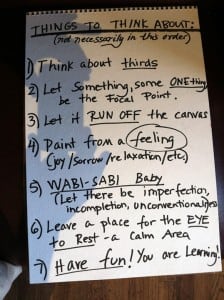 THINGS TO THINK ABOUT:
(not necessarily in this order)
1) Think about thirds
2) Let Something, some ONE thing
be the Focal Point.
3) Let it RUN OFF the canvas
4) Paint from a feeling
(joy/sorrow/relaxation/etc)
5) WABI-SABI Baby
(Let there be imperfection,
incompletion, unconventionality)
6) Leave a place for the EYE
to Rest - a Calm Area
7) Have fun! You are Learning!